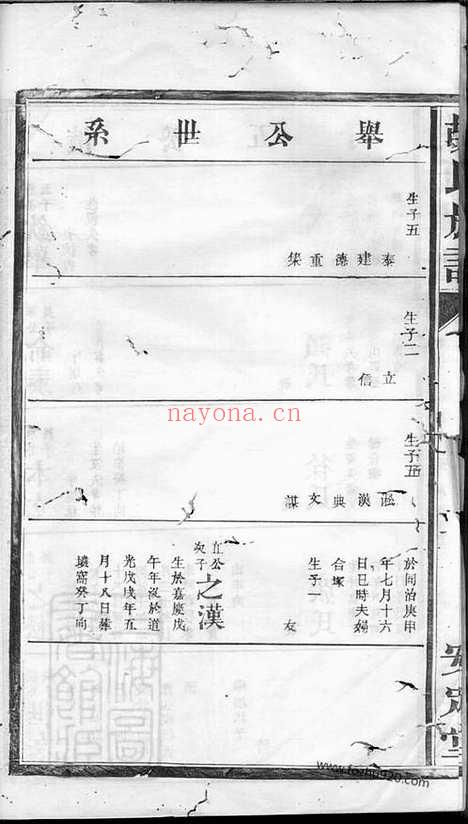 氏族譜
安定堂
舉公世系
生子五
泰建德重集
生子二
立信
生子五
漢典文謀
於同治庚申
年七月十六
日巳時夫婦
合塚
生子一
友
公次子
之漢
生於嘉慶戊
午年沒於道
光戊戌年五
月十八日葬
壤窩癸丁向
nayona.cn
www.foxhu920.com